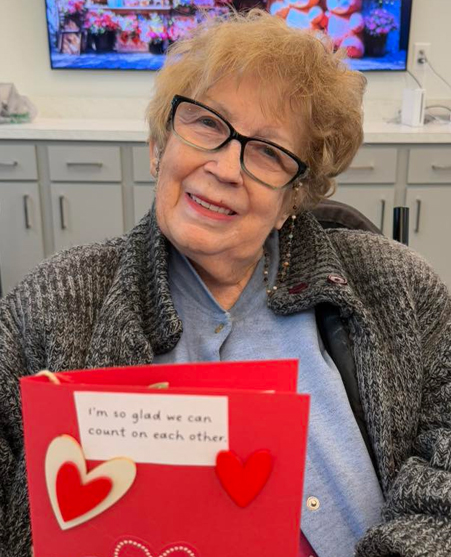 I'm so glad we can
count on each other.